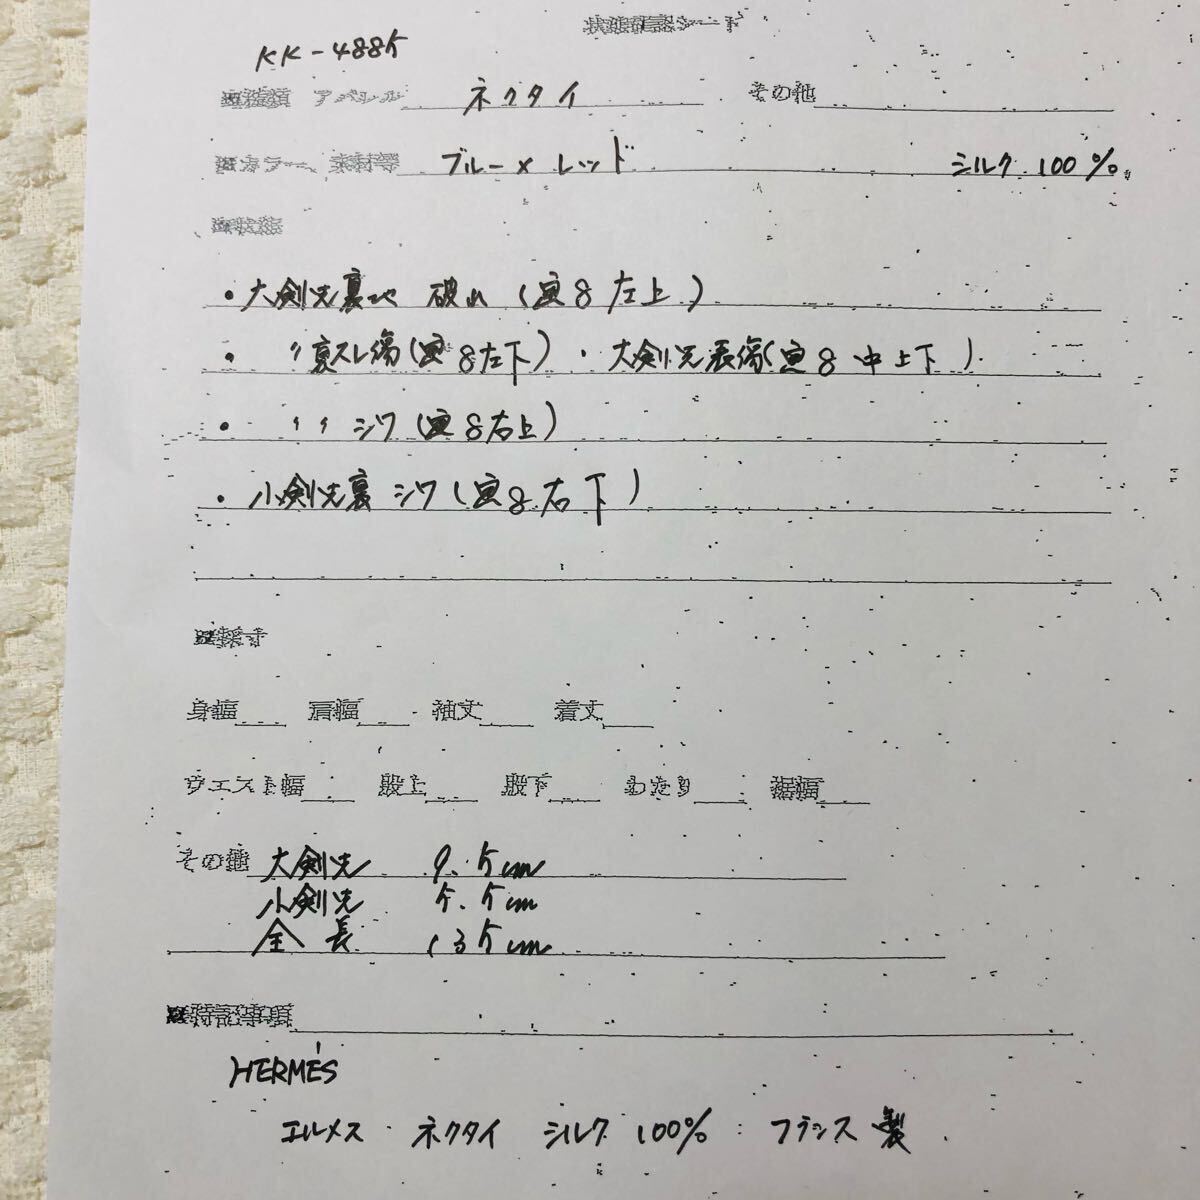 状態確認シート
KK-4885
■種類 アパレル ネクタイ その他
■カラー、素材等 ブルー×レッド シルク 100%
■状態
・大剣先裏地 破れ (写8 左上)
・〃裏スレ傷(写8左下)・大剣先表傷(写8 中上下)
・〃〃 シワ (写8右上)
・小剣先裏 シワ (写8右下)
■採寸
身幅 肩幅 袖丈 着丈
ウエスト幅 股上 股下 わたり 裾幅
その他 大剣先 9.5cm
小剣先 5.5cm
全長 135cm
■特記事項
HERMÈS
エルメス ネクタイ シルク 100% フランス製